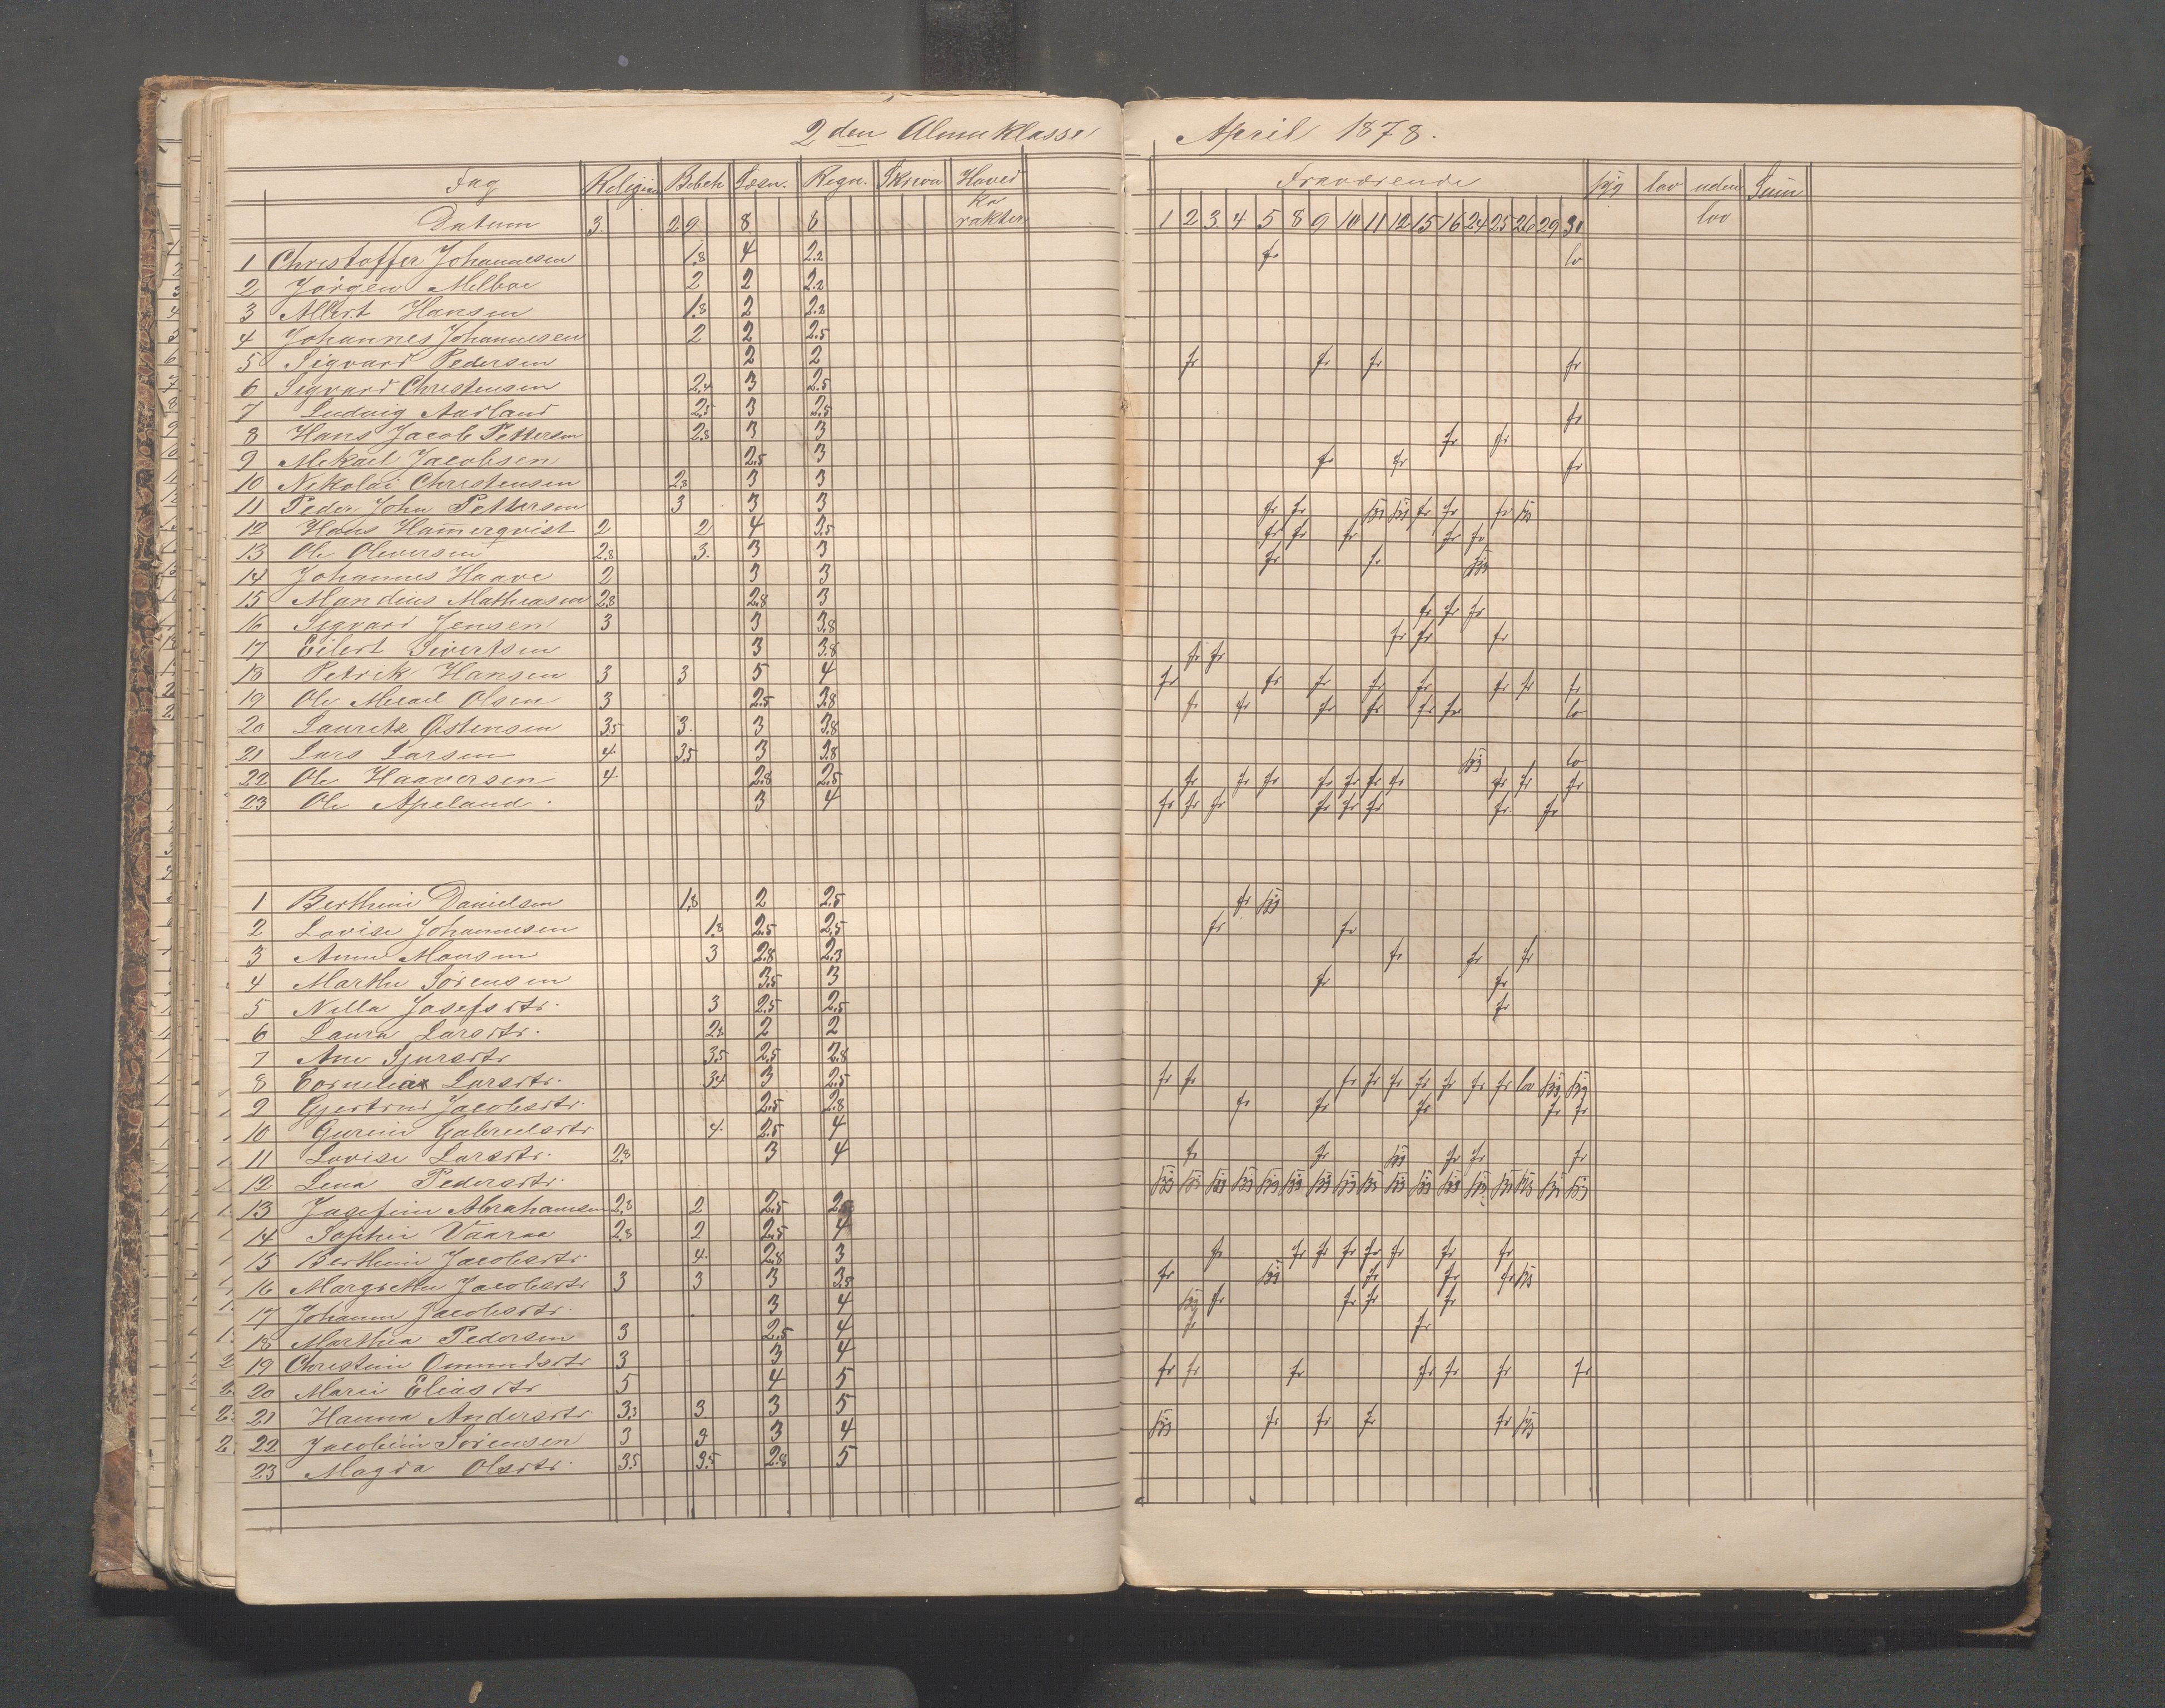 2 den Almuklasse April 1878.
Fag Religion Bibelh Læsn. Regn. Skrivn Hoved Ka rakter Fraværende syg lov uden lov Sum
Datum 3. 2 9. 8. 6 1 2 3 4 5 8 9 10 11 12 15 16 24 25 26 29 30
1 Christoffer Johannesen 1.8 4 2.2 fr lo
2 Jørgen Melboe 2 2 2.2
3 Albert Hansen 1.8 2 2.2
4 Johannes Johannesen 2 2 2.5
5 Sigvard Pedersen 2 2 fr fr fr fr
6 Sigvard Christensen 2.4 3 2.5
7 Ludvig Aarland 2.5 3 2.5 fr
8 Hans Jacob Pettersen 2.8 3 3 fr fr
9 Mekael Jacobsen 2.5 3 fr fr fr
10 Nikolai Christensen 2.8 3 3
11 Peder John Pettersen 3 3 3 fr fr syg syg fr fr fr syg
12 Hans Hamerqvist 2 2 4 3.5 fr fr fr fr fr
13 Ole Oleversen 2.8 3. 3 3 fr fr syg
14 Johannes Haave 2 3 3
15 Mandius Mathiasen 2.8 2.8 3 fr fr fr
16 Sigvard Jensen 3 3 3.8 fr fr fr
17 Eilert Sivertsen 3 3.8 fr fr
18 Petrik Hansen 3 3 5 4 fr fr fr fr fr fr fr fr
19 Ole Micael Olsen 3 2.5 3.8 fr fr fr fr fr fr lo
20 Lauritz Østensen 3.5 3. 3 3.8
21 Lars Larsen 4. 3.5 3 3.8 syg lo
22 Ole Haaversen 4 2.8 2.5 fr fr fr fr fr fr fr fr fr fr
23 Ole Apeland. 3 4 fr fr fr fr fr fr fr fr
1 Berthine Danielsen 1.8 2 2.5 fr syg
2 Lovise Johannesen 1.8 2.5 2.5 fr fr
3 Anna Monsen 3 2.8 2.3 fr fr fr
4 Martha Sørensen 3.5 3 fr fr
5 Nilla Josefsdtr. 3 2.5 2.5 fr
6 Laura Larsdtr. 2.8 2 2
7 Ane Sjursdtr 3.5 2.5 2.8
8 Cornelia Larsdtr. 3.4 3 2.5 fr fr fr fr fr fr fr fr fr lov syg syg
9 Gjertrud Jacobsdtr. 2.5 2.8 fr fr fr fr fr
10 Gurine Gabrielsdtr 4. 2.5 4
11 Lovise Larsdtr. 2.8 3 4 fr fr syg fr fr fr
12 Lena Pedersdtr. syg syg syg syg syg syg syg syg syg syg syg syg syg syg syg syg syg
13 Josefine Abrahamsen 2.8 2 2.5
14 Sophie Vaaraa 2.8 2 2.5 4
15 Berthine Jacobsdtr. 4. 2.8 3 fr fr fr fr fr fr fr fr
16 Margrethe Jacobsdtr 3 3 3 3.5 fr syg fr fr fr syg
17 Johanne Jacobsdtr. 3 4 syg fr fr fr fr
18 Marthea Pedersen 3 2.5 4 fr fr
19 Christine Omundsdtr 3 3 4 fr fr fr fr fr fr fr
20 Marie Eliasdtr 5 4 5
21 Hanna Andersdtr 3.3 3. 3 5 syg fr fr fr fr syg
22 Jacobine Sørensen 3 3 3 4
23 Magda Olsdtr. 3.5 3.5 2.8 5